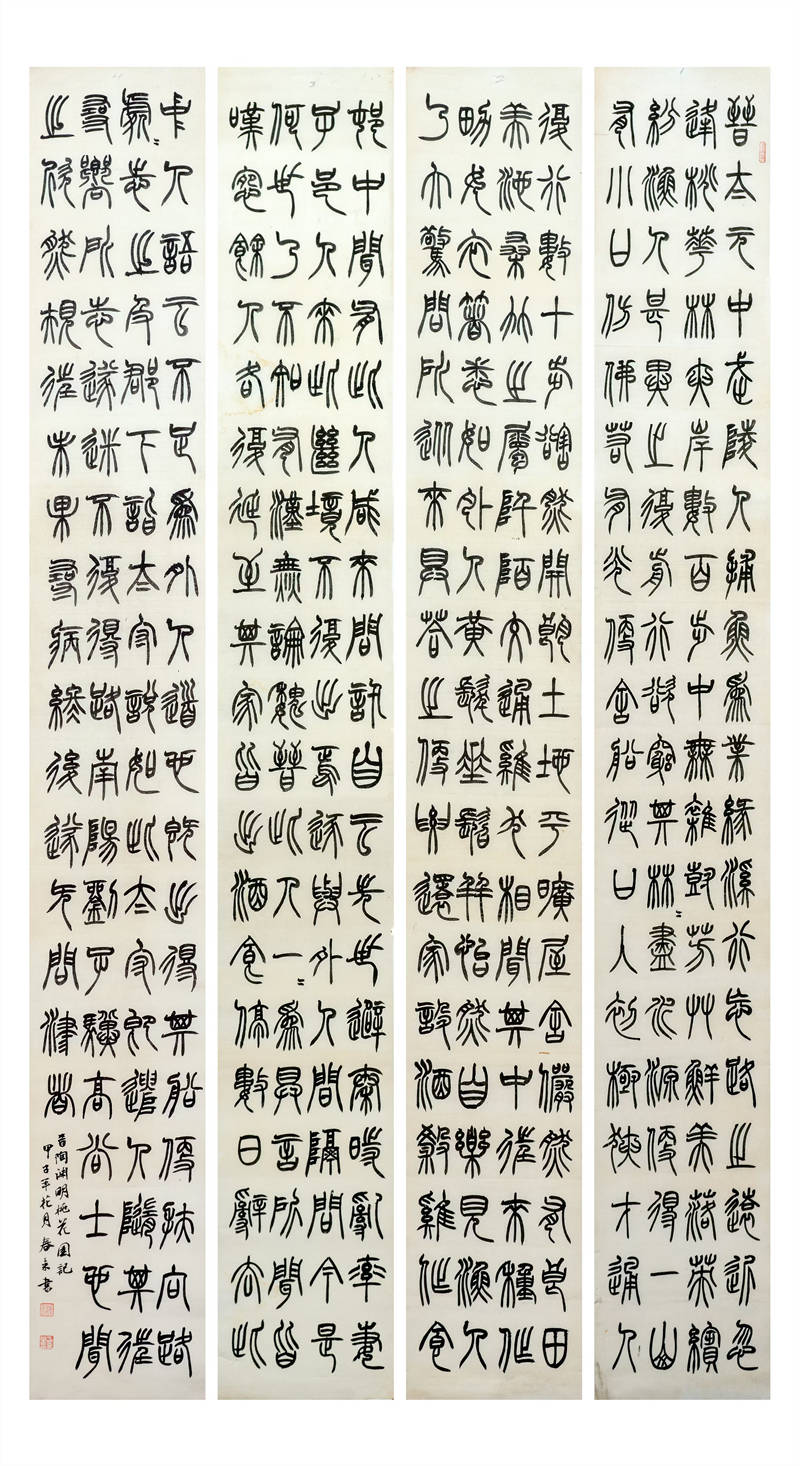 晉太元中武陵人捕魚為業緣溪行忘路之遠近忽
逢桃華林夾岸數百步中無雜樹芳草鮮美落英繽
紛漁人甚異之復前行欲窮其林〻盡水源便得一山
有小口仿佛若有光便舍船從口入初極狹才通人
復行數十步豁然開朗土地平曠屋舍儼然有良田
美池桑竹之屬阡陌交通雞犬相聞其中往來種作
男女衣著悉如外人黃髮垂髫並怡然自樂見漁人
乃大驚問所從來具答之便要還家設酒殺雞作食
村中聞有此人咸來問訊自云先世避秦時亂率妻
子邑人來此絕境不復出焉遂與外人間隔問今是
何世乃不知有漢無論魏晉此人一〻為具言所聞皆
嘆惋餘人各復延至其家皆出酒食停數日辭去此
中人語云不足為外人道也既出得其船便扶向路
處〻志之及郡下詣太守說如此太守即遣人隨其往
尋嚮所志遂迷不復得路南陽劉子驥高尚士也聞
之欣然規往未果尋病終後遂无問津者
晉陶淵明桃花園記
甲子年花月春書